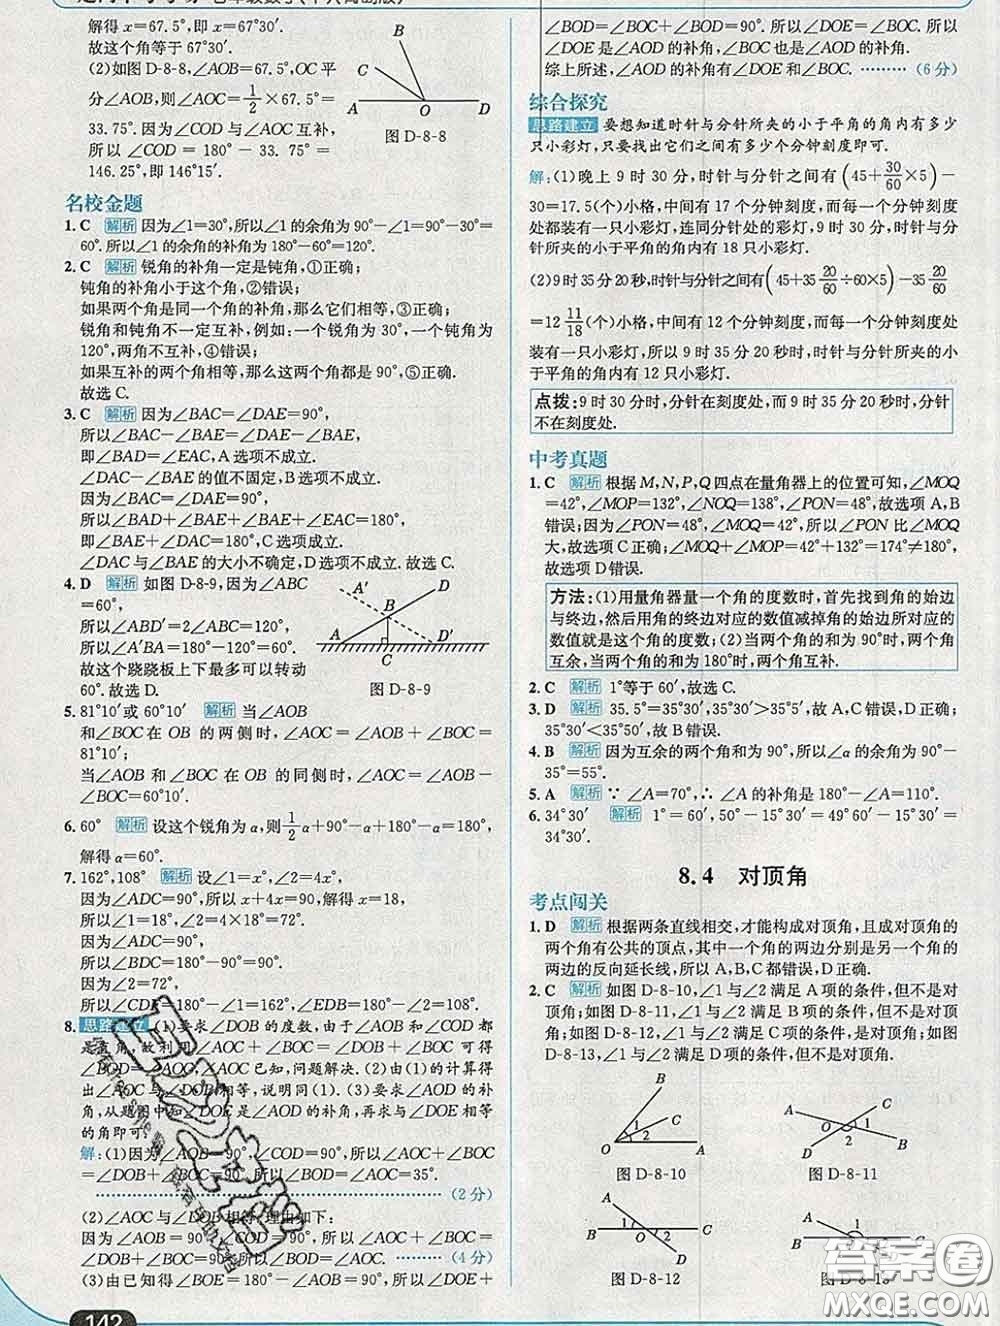 解得 x=67.5,即 x=67°30′.
故这个角等于 67°30′.
(2)如图 D-8-8,∠AOB=67.5°,OC 平
分∠AOB,则∠AOC=1/2×67.5°=
33.75°.因为∠COD 与∠AOC 互补,
所以 ∠COD = 180° - 33.75° =
146.25°,即 146°15′.
B
C
A
O
D
图 D-8-8
名校金题
1. C 解析 因为∠1=30°,所以∠1的余角为90°-∠1=90°-30°=
60°.所以∠1的余角的补角为180°-60°=120°.
2. C 解析 锐角的补角一定是钝角,①正确;
钝角的补角小于这个角,②错误;
如果两个角是同一个角的补角,那么它们相等,③正确;
锐角和钝角不一定互补,例如:一个锐角为 30°,一个钝角为
120°,两角不互补,④错误;
如果互补的两个角相等,那么这两个角都是 90°,⑤正确.
故选 C.
3. C 解析 因为∠BAC=∠DAE=90°,
所以∠BAC-∠BAE=∠DAE-∠BAE,
即∠BAD=∠EAC,A 选项不成立.
∠DAC-∠BAE 的值不固定,B 选项不成立.
因为∠BAC=∠DAE=90°,
所以∠BAD+∠BAE+∠BAE+∠EAC=180°,
即∠BAE+∠DAC=180°,C 选项成立.
∠DAC 与∠BAE 的大小不确定,D 选项不成立.故选 C.
4. D 解析 如图 D-8-9,因为∠ABC
=60°,
所以∠ABD′=2∠ABC=120°.
所以∠A′BA=180°-120°=60°.
故这个跷跷板上下最多可以转动
60°.故选 D.
A′
D
B
A
C
D′
图 D-8-9
5. 81°10′或 60°10′ 解析 当∠AOB
和∠BOC 在 OB 的两侧时,∠AOC=∠AOB+∠BOC=
81°10′;
当∠AOB 和∠BOC 在 OB 的同侧时,∠AOC=∠AOB-
∠BOC=60°10′.
6. 60° 解析 设这个锐角为 α,则1/2α+90°-α+180°-α=180°,
解得 α=60°.
7. 162°,108° 解析 设∠1=x°,∠2=4x°,
因为∠ADC=90°,所以 x+4x=90,解得 x=18.
所以∠1=18°,∠2=4×18°=72°.
因为∠ADC=90°,
所以∠BDC=90°,
因为∠2=72°,
所以∠CDE=180°-∠1=162°,∠EDB=180°-∠2=108°.
8. 思路建立 (1)要求∠DOB 的度数,由于∠AOB 和∠COD 都
是直角,故利用∠AOC+∠BOC=∠DOB+∠BOC 可得
∠DOB=∠AOC,∠AOC 已知,问题解决.(2)由(1)的计算得
出∠AOC 与∠DOB 相等,说明同(1).(3)要求∠AOD 的补
角,从题图中找出∠BOC 是∠AOD 的补角,再求与∠DOE 相等
的角即可.
解:(1)因为∠AOB=90°,∠COD=90°,所以∠AOC+∠BOC
=∠DOB+∠BOC=90°,所以∠BOD=∠AOC=35°.
(2 分)
(2)∠AOC 与∠DOB 相等.理由如下:
因为∠AOB=90°,∠COD=90°,所以∠AOC+∠BOC=
∠DOB+∠BOC=90°,所以∠BOD=∠AOC. (4 分)
(3)由已知得∠BOE=180°-∠AOB=90°,即∠BOD+∠DOE=
142
∠BOD=∠BOC+∠BOD=90°,所以∠DOE=∠BOC.
所以∠DOE 是∠AOD 的补角,∠BOC 也是∠AOD 的补角.
综上所述,∠AOD 的补角有∠DOE 和∠BOC. (6 分)
综合探究
思路建立 要想知道时针与分针所夹的小于平角的角内有多少
只小彩灯,只要找出它们之间有多少个分钟刻度即可.
解:(1)晚上 9 时 30 分,时针与分针之间有(45+30/60×5)-
30=17.5(个)小格,中间有 17 个分钟刻度,而每一个分钟刻
度处装有一只小彩灯,连同分针处的小彩灯,9 时 30 分,时针与分
针所夹的小于平角的角内有 18 只小彩灯.
(2)9 时 35 分 20 秒,时针与分针之间有(45+35 20/60÷60×5)-35 20/60
=12 11/18(个)小格,中间有 12 个分钟刻度,而每一个分钟刻度处
装有一只小彩灯,所以 9 时 35 分 20 秒时,时针与分针所夹的小于
平角的角内有 12 只小彩灯.
点拨:9 时 30 分时,分针在刻度处,而 9 时 35 分 20 秒时,分针
不在刻度处.
中考真题
1. C 解析 根据 M,N,P,Q 四点在量角器上的位置可知,∠MOQ
=42°,∠MOP=132°,∠NOQ=138°,∠PON=48°,故选项 A,B
错误;因为∠PON=48°,∠MOQ=42°,所以∠PON 比∠MOQ
大,故选项 C 正确;∠MOQ+∠MOP=42°+132°=174°≠180°,
故选项 D 错误.
方法:(1)用量角器量一个角的度数时,首先找到角的始边
与终边,然后用角的终边对应的数值减掉角的始边所对应的
数值就是这个角的度数;(2)当两个角的和为 90°时,两个角
互余,当两个角的和为 180°时,两个角互补.
2. C 解析 1°等于 60′,故选 C.
3. D 解析 35.5°=35°30′,35°30′>35°5′,故 A,C 错误,D 正确;
35°30′<35°50′,故 B 错误.
4. B 解析 因为互余的两个角和为 90°,所以∠α 的余角为 90°-
35°=55°.
5. A 解析 ∵∠A=70°,∴∠A 的补角是 180°-∠A=110°.
6. 34°30′ 解析 1°=60′,50°-15°30′=49°60′-15°30′=
34°30′.
8.4 对顶角
考点闯关
1. D 解析 根据两条直线相交,才能构成对顶角,且成对顶角的
两个角有公共的顶点,其中一个角的两边分别是另一个角的
两边的反向延长线,所以 A,B,C 都错误,D 正确.
2. C 解析 如图 D-8-10,∠1 与∠2 满足 A 项的条件,但不是对
顶角;如图 D-8-11,∠1 与∠2 满足 B 项的条件,但不是对顶角;
如图 D-8-12,∠1 与∠2 满足 C 项的条件,是对顶角;如图
D-8-13,∠1 与∠2 满足 D 项的条件,但不是对顶角.
A
C
1
2
O
B
图 D-8-10
A
C
1
2
O
B
D
图 D-8-11
A
1
O
2
B
C
D
图 D-8-12
答案圈
MXQE.COM